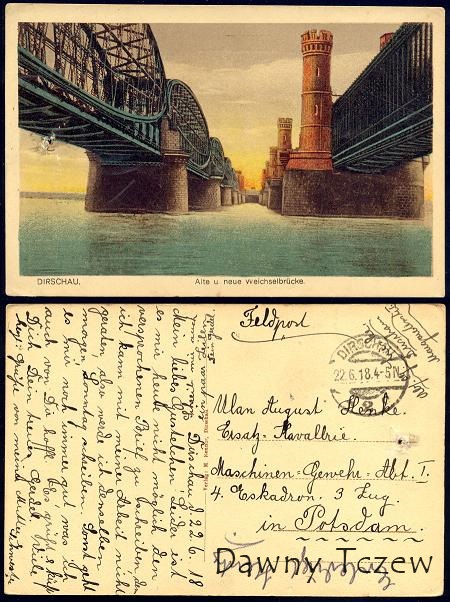 DIRSCHAU.
Alte u. neue Weichselbrücke.
Feldpost
DIRSCHAU
22.6.18.4-5N.
Ulan August Henke.
Ersatz-Kavallerie.
Maschinen-Gewehr-Abt. I.
4. Eskadron. 3 Zug.
in Potsdam.
Dirschau d 22. 6. 18
Mein liebes Gustelchen! Leider ist
es mir heute nicht möglich den
versprochenen Brief zu schreiben denn
ich kann mit meiner Arbeit nicht
geraten, also werd ich denselben
morgen Sonntag schreiben. Sonst geht
es mir noch immer gut was ich
auch von Dir hoffe. Es grüßt u. küßt
Dich Dein treuer
Grüße von meine Mutter u. Schwester
Dawny Tczew